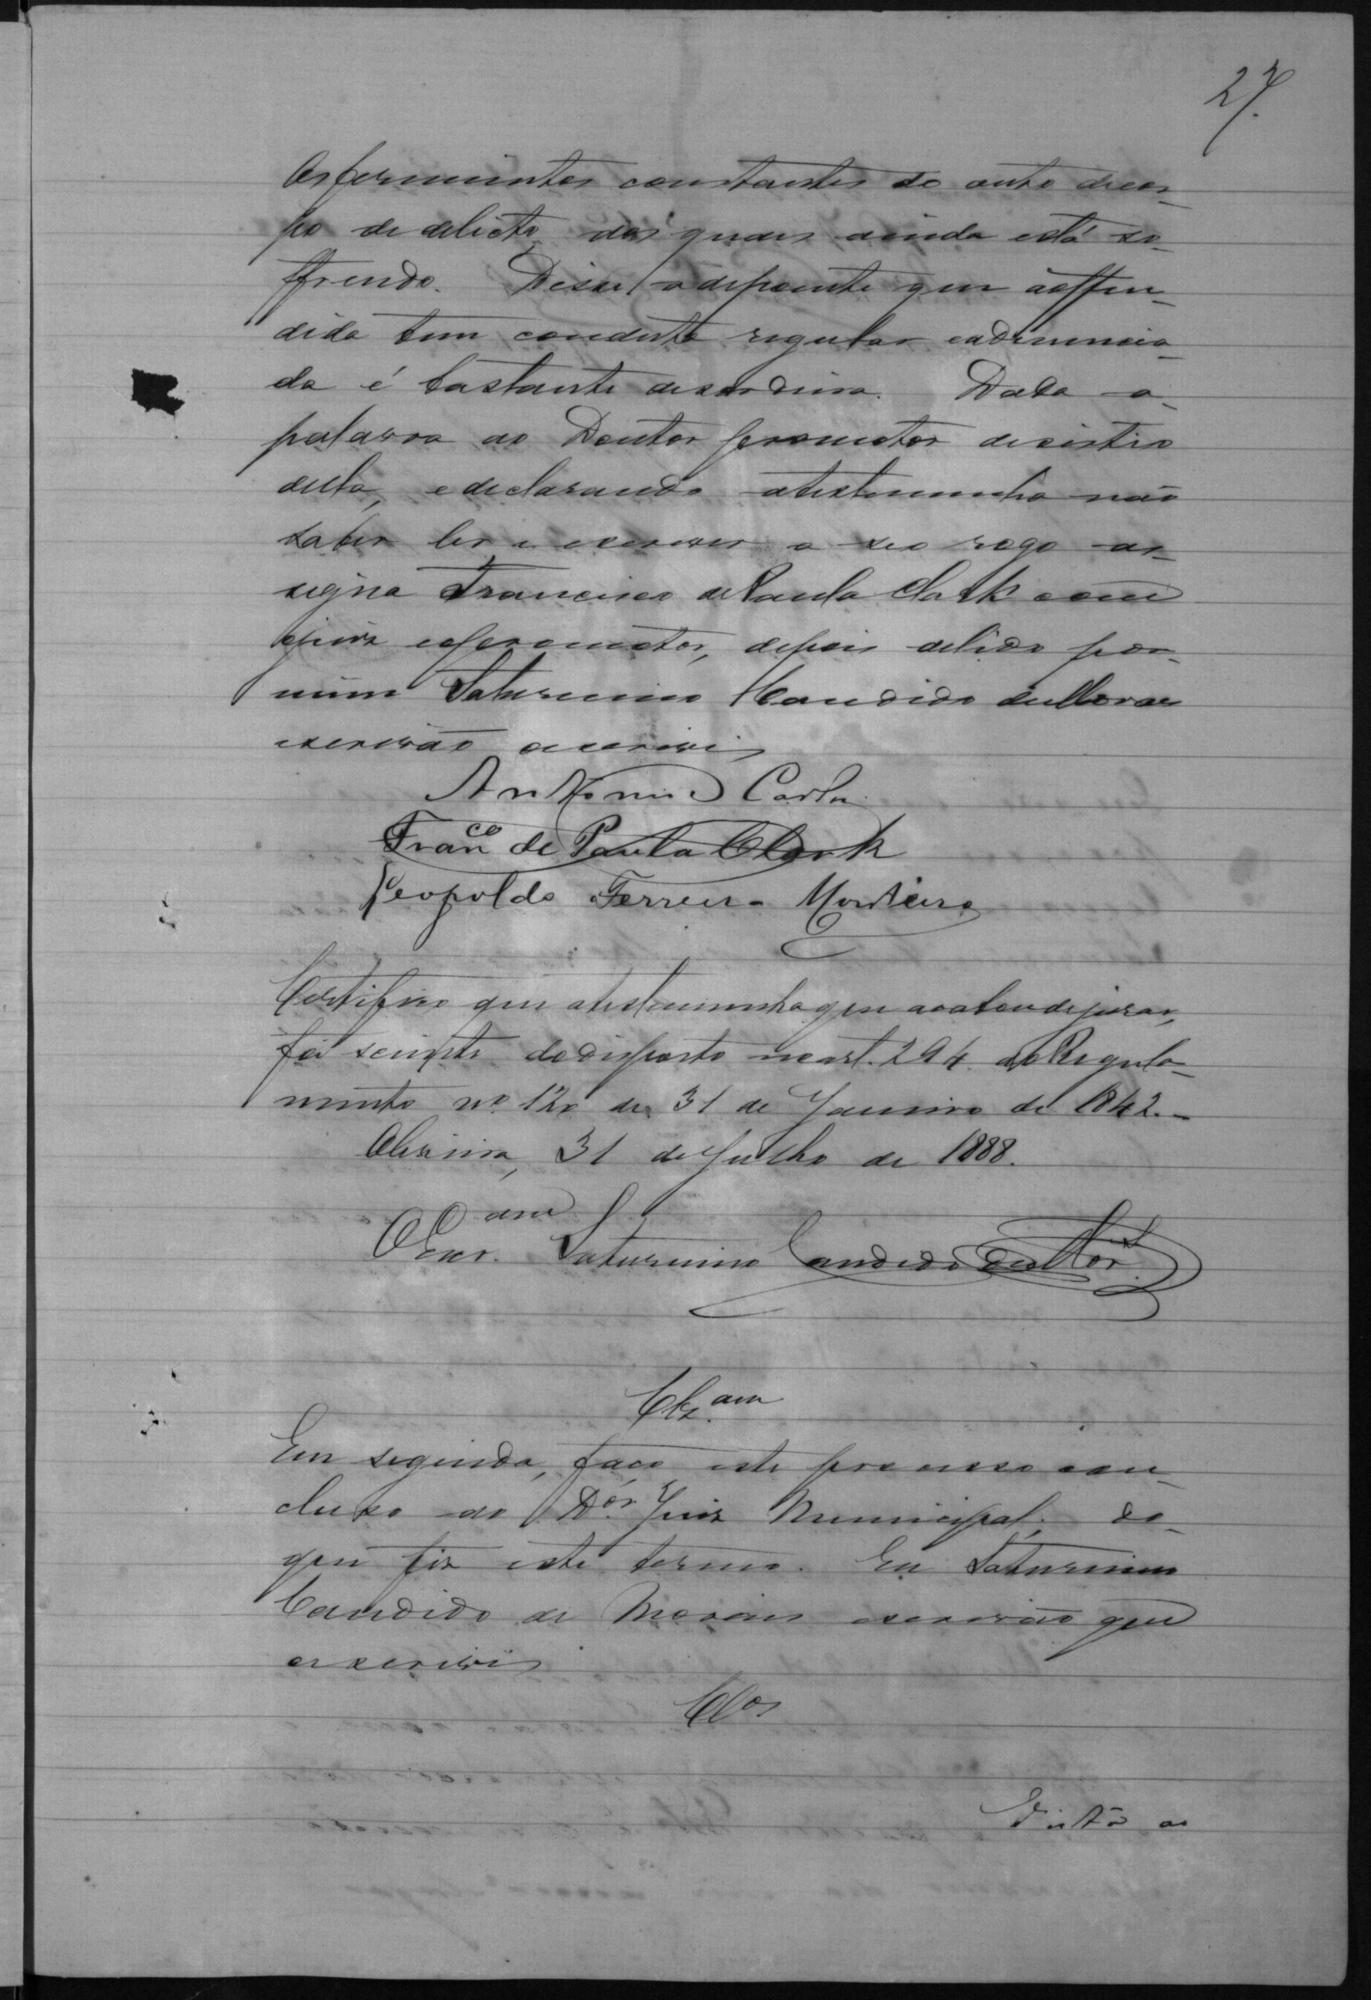 27.
Os ferimentos constantes do auto de cor-
po de delicto, dos quaes ainda está so-
ffrendo. Disse o depoente que a offen-
dida tem conducta regular e a denuncia-
da é bastante desordeira. Dada a
palavra ao Doutor Promotor desistio
della, e declarando a testemunha não
saber ler e escrever a seo rogo as-
signa Francisco de Paula Clark com
o juiz e o promotor, depois de lido por
mim Saturnino Candido de Moraes
escrivão o escrevi
Antonio
Fran.co de Paula Clark
Leopoldo Ferreira Monteiro
Certifico que a testemunha que acabou de jurar,
foi sciente do disposto no art. 294 do Regula-
mento nº 120 de 31 de Janeiro de 1842.-
31 de Julho de 1888.
O Escr.am Saturnino Candido de Mor.
Clz.am
Em seguida, faço este processo con-
cluso ao D.or Juiz Municipal; do
que fiz este termo. Eu Saturnino
Candido de Moraes escrivão que
o escrevi
Clos